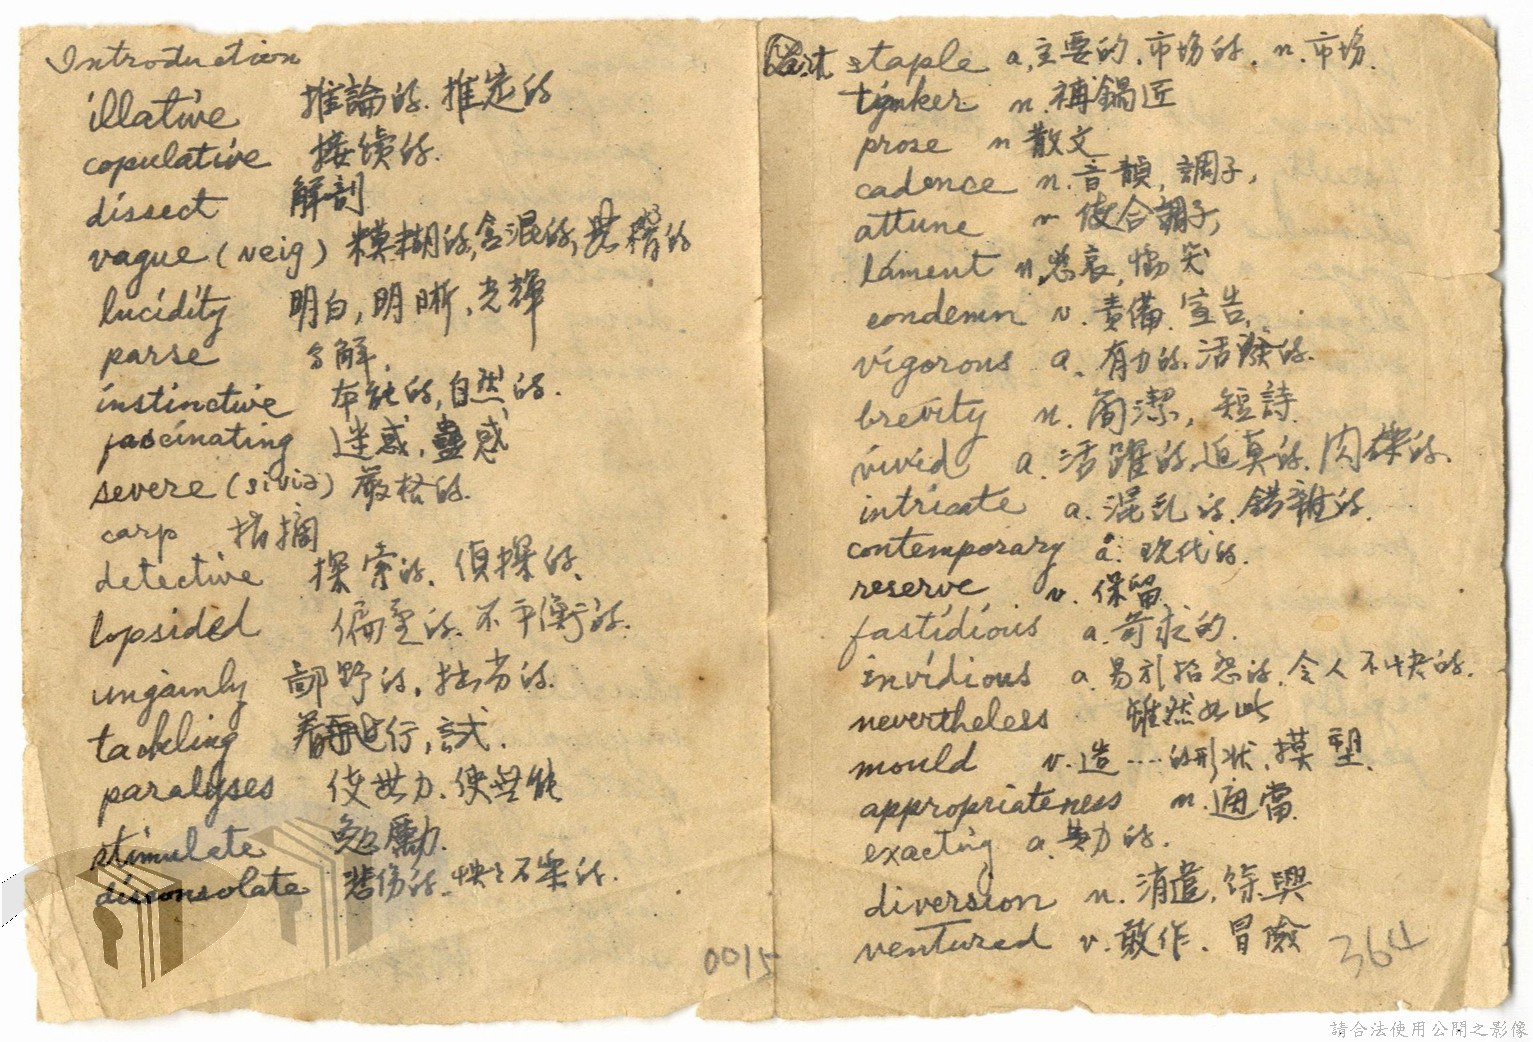 Introduction
illative 推論的. 推定的
copulative 接續的.
dissect 解剖
vague (veig) 模糊的, 含混的,
lucidity 明白, 明晰, 光輝
parse 分解.
instinctive 本能的, 自然的.
fascinating 迷惑, 蠱惑
severe (sivia) 嚴格的.
carp 指摘
detective 探索的. 偵探的.
lopsided 偏重的. 不平衡的.
ungainly 鄙野的, 拙劣的.
tackling 行, 試.
paralyses 使無力. 使無能
stimulate 勉勵.
disconsolate 悲傷的. 怏々不樂的.
0015
staple a. 主要的. 市場的. n. 市場.
tinker n. 補鍋匠
prose n 散文
cadence n. 音韻, 調子,
attune v 使合調子,
lament n, 悲哀, 慟哭
condemn v. 責備. 宣告.
vigorous a. 有力的. 活潑的.
brevity n. 簡潔, 短詩.
vivid a. 活躍的, 迫真的.
intricate a. 混乱的. 錯雜的.
contemporary a. 現代的.
reserve v. 保留
fastidious a. 苛求的.
invidious a. 易引招怨的. 令人不快的.
nevertheless 雖然如此
mould v. 造....的形状. 摸塑.
appropriateness n. 適當.
exacting a. 力的.
diversion n. 消遣, 餘興
ventured v. 敢作. 冒險
364
請合法使用公開之影像